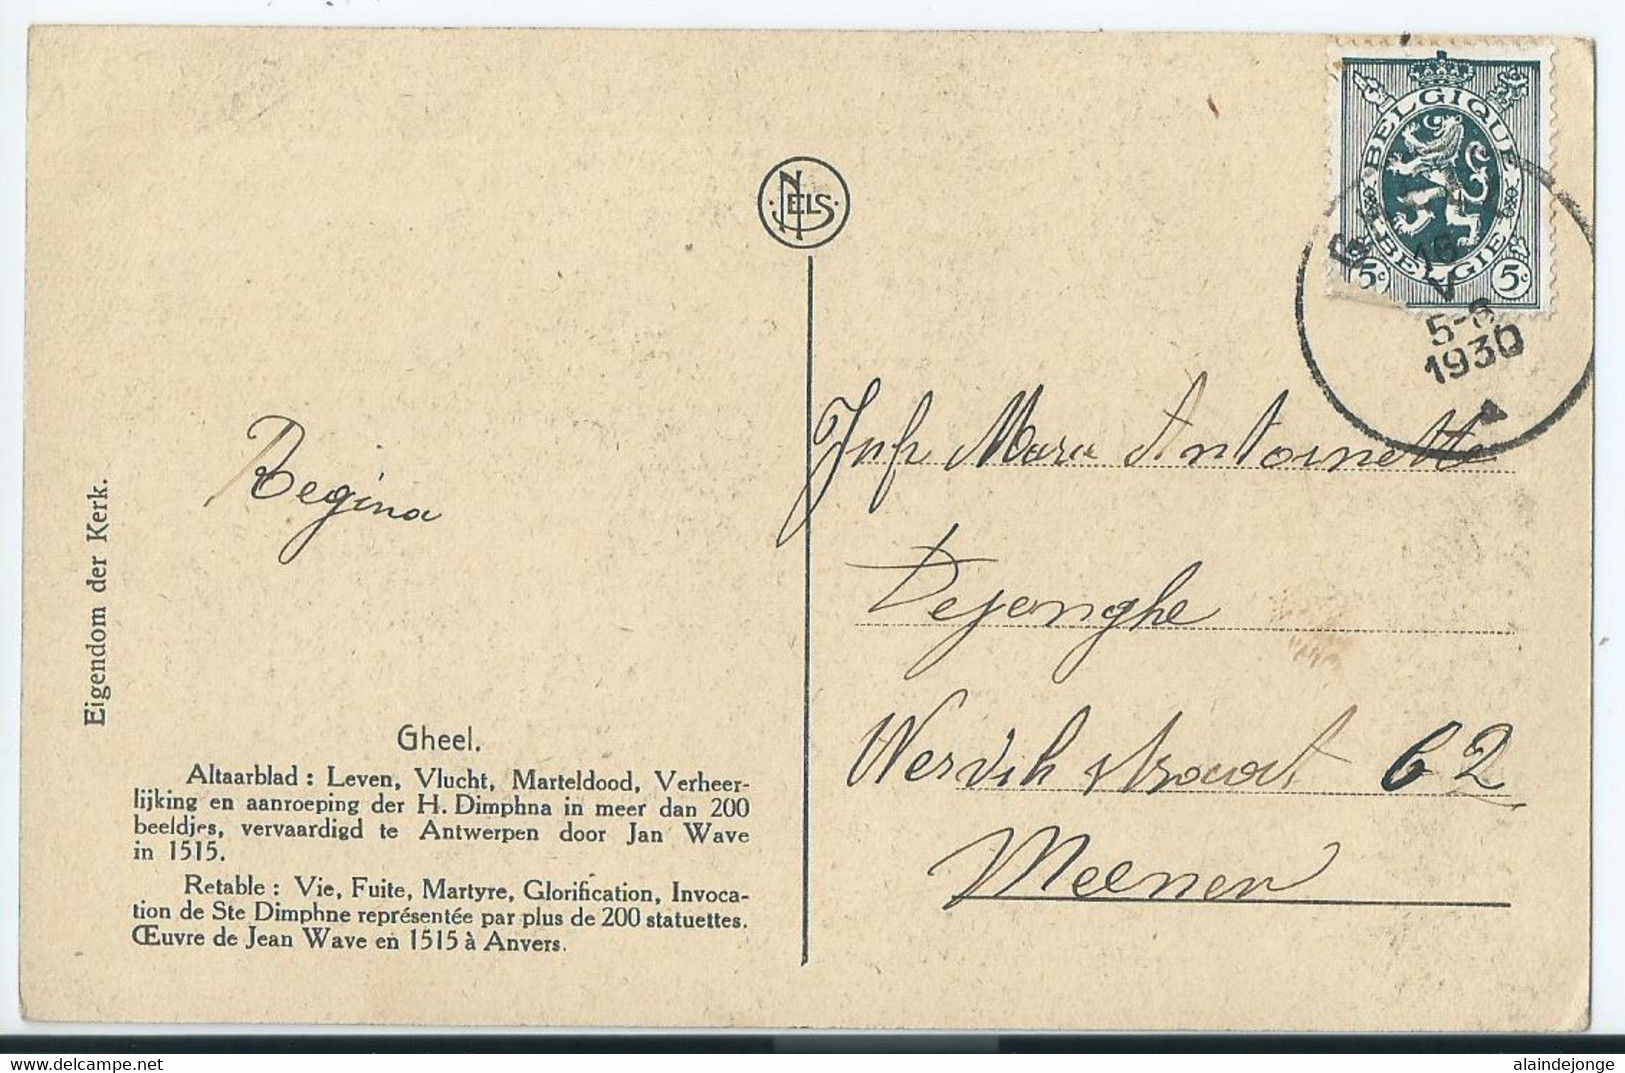 NELS
BELGIQUE
BELGIË
5c 5c
16
V
5-6
1930
Regina
Eigendom der Kerk.
Gheel.
Altaarblad : Leven, Vlucht, Marteldood, Verheer-
lijking en aanroeping der H. Dimphna in meer dan 200
beeldjes, vervaardigd te Antwerpen door Jan Wave
in 1515.
Retable : Vie, Fuite, Martyre, Glorification, Invoca-
tion de Ste Dimphne représentée par plus de 200 statuettes.
Œuvre de Jean Wave en 1515 à Anvers.
Jufr Maria Antoinette
Dejonghe
Wervikstraat 62
Meenen
delcampe.net
alaindejonge